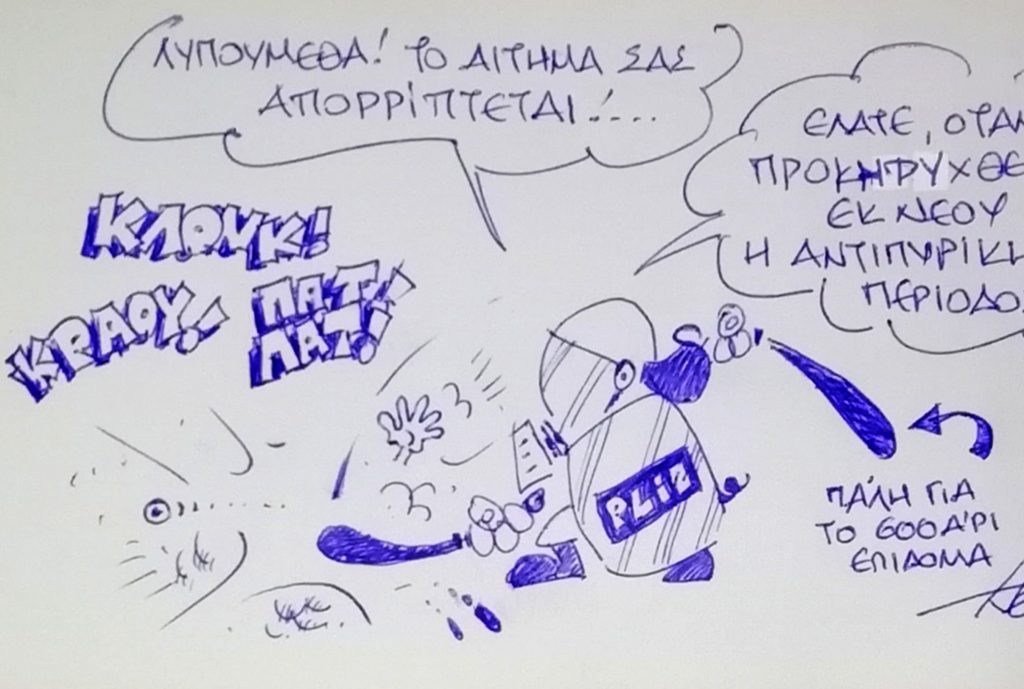 ΛΥΠΟΥΜΕΘΑ! ΤΟ ΑΙΤΗΜΑ ΣΑΣ
ΑΠΟΡΡΙΠΤΕΤΑΙ!....
ΕΛΑΤΕ, ΟΤΑΝ
ΠΡΟΚΗΡΥΧΘΕ
ΕΚ ΝΕΟΥ
Η ΑΝΤΙΠΥΡΙΚΗ
ΠΕΡΙΟΔΟ
ΚΛΟΥΚ!
ΚΡΑΟΥ! ΠΑΤ!
ΠΑΤ!
ΠΑΛΗ ΓΙΑ
ΤΟ 600ΑΡΙ
ΕΠΙΔΟΜΑ